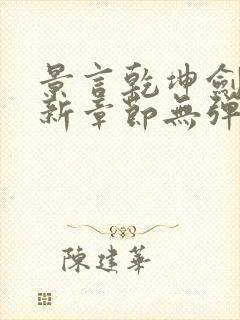 景言乾坤劍
新章節無彈
陳建華